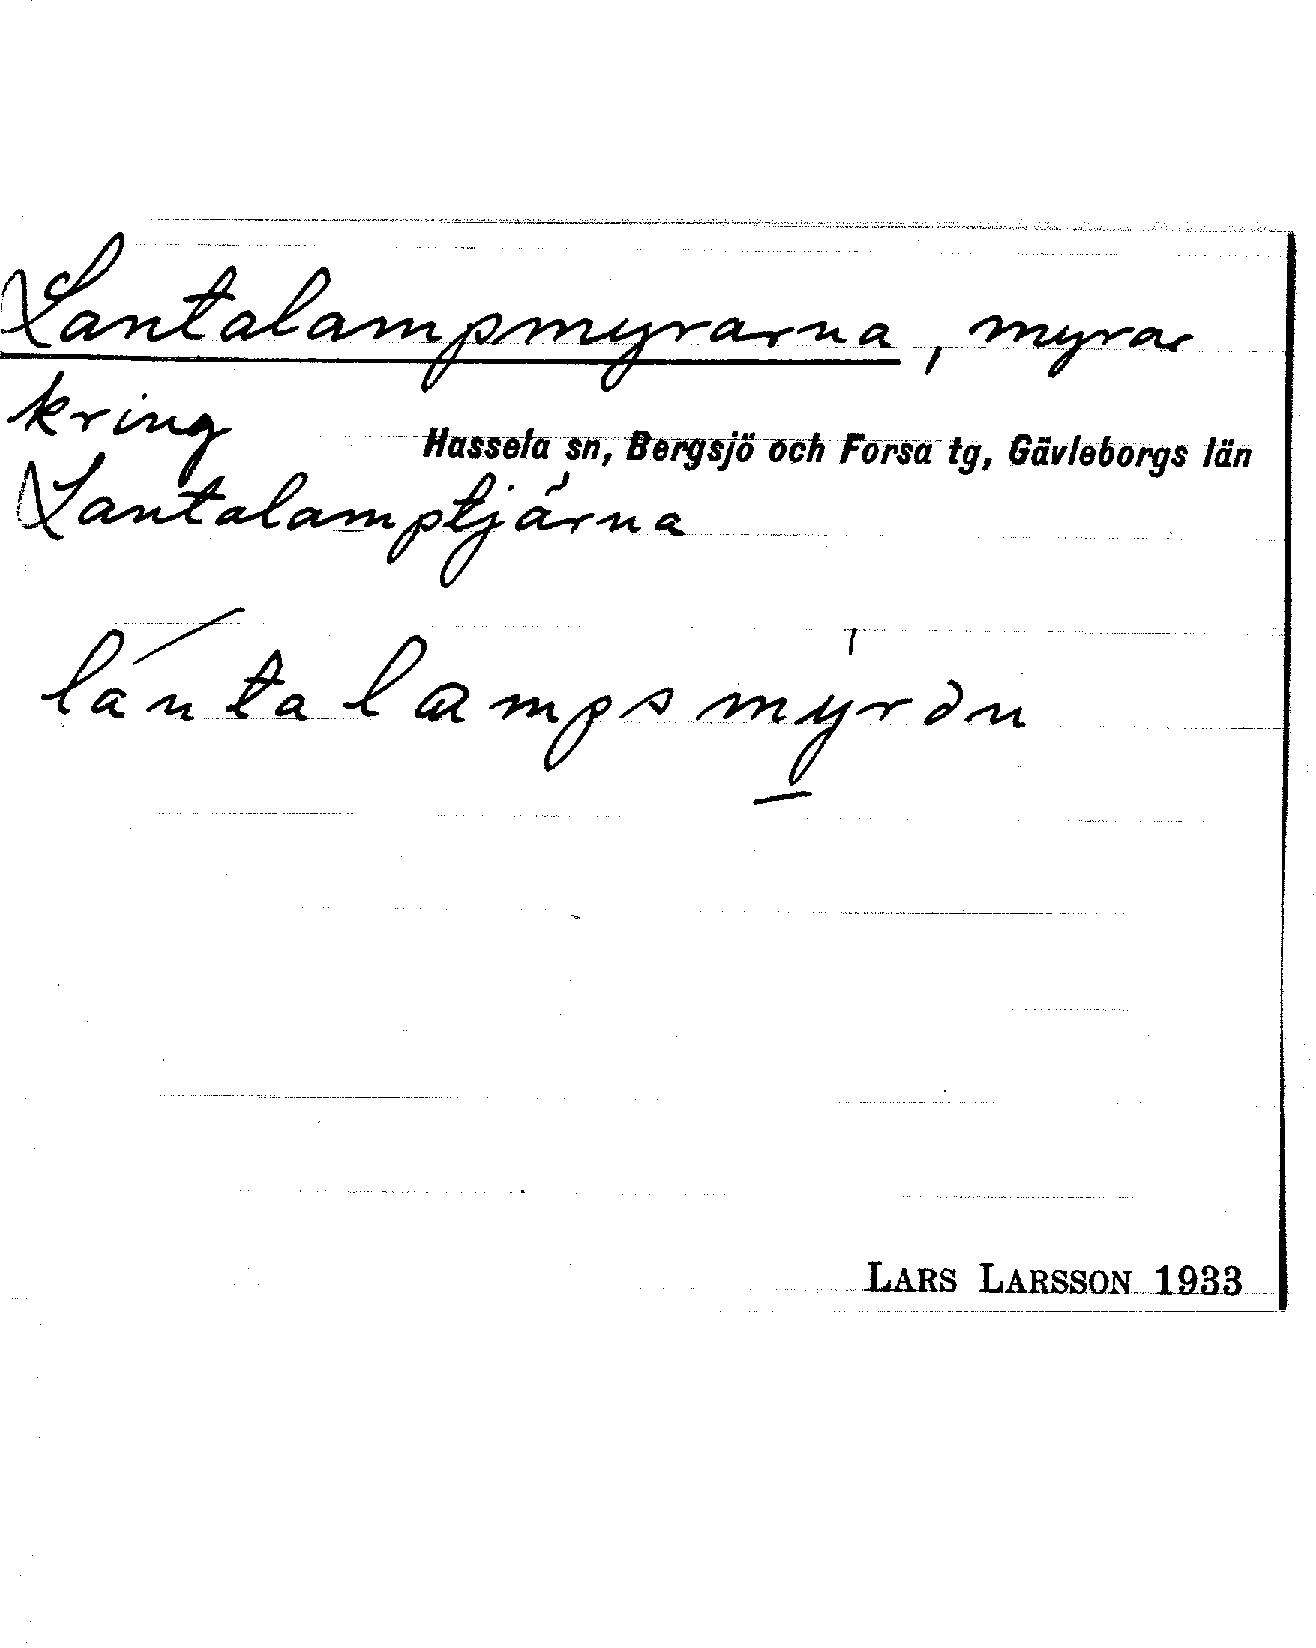 Lantalampmyrarna, myrar
kring
Hassela sn, Bergsjö och Forsa tg, Gävleborgs län
Lantalamptjärna
lantalampsmyrən
LARS LARSSON 1933